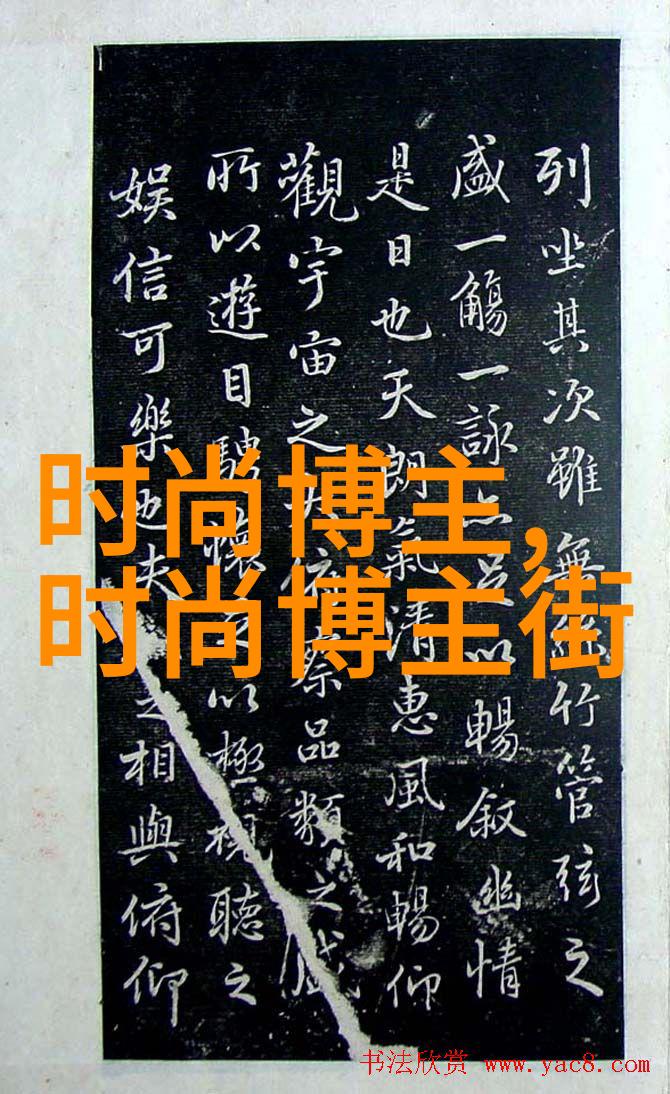 列坐其次雖無絲竹管弦之
盛一觴一詠亦足以暢敘幽情
是日也天朗氣清惠風和暢仰
觀宇宙之大俯察品類之盛
所以遊目騁懷足以極視聽之
娛信可樂也夫之相與俯仰
时尚博主,
时尚博主街
书法欣赏 www.yac8.com